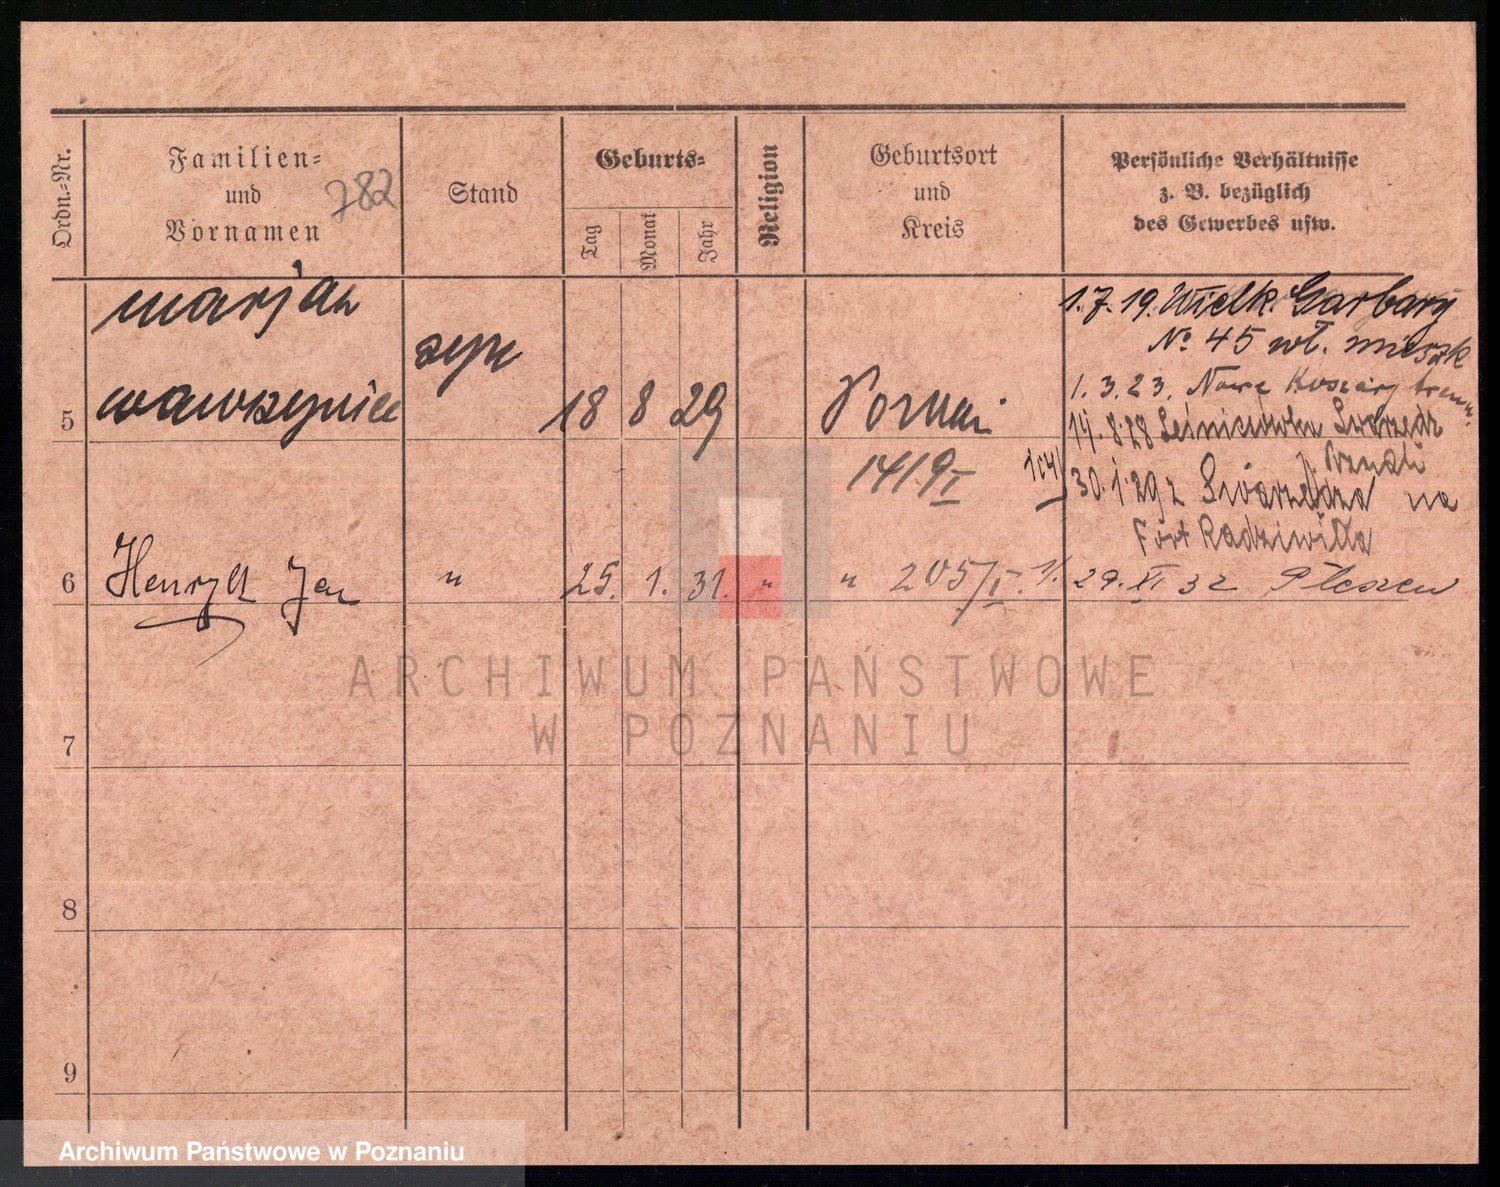 Ordn.-Nr.
Familien-
und
Vornamen
782
Stand
Geburts-
Tag
Monat
Jahr
Religion
Geburtsort
und
Kreis
Persönliche Verhältnisse
z. B. bezüglich
des Gewerbes usw.
marjan
syn
wawrzyniec
5
18 8 29
Poznań
1419/I
1.7.19. Wielk. Garbary
No 45 wł. mieszk
1.3.23. Nowe Koszary
14.8.28 Leśniczówka Swarzędz
30.1.29 z Swarzędza na
Fort Radziwiłła
6
Henryk Jan
"
25. 1. 31.
"
" 205/I.
29. XI 32 Pleszew
7
8
9
ARCHIWUM PAŃSTWOWE
W POZNANIU
Archiwum Państwowe w Poznaniu